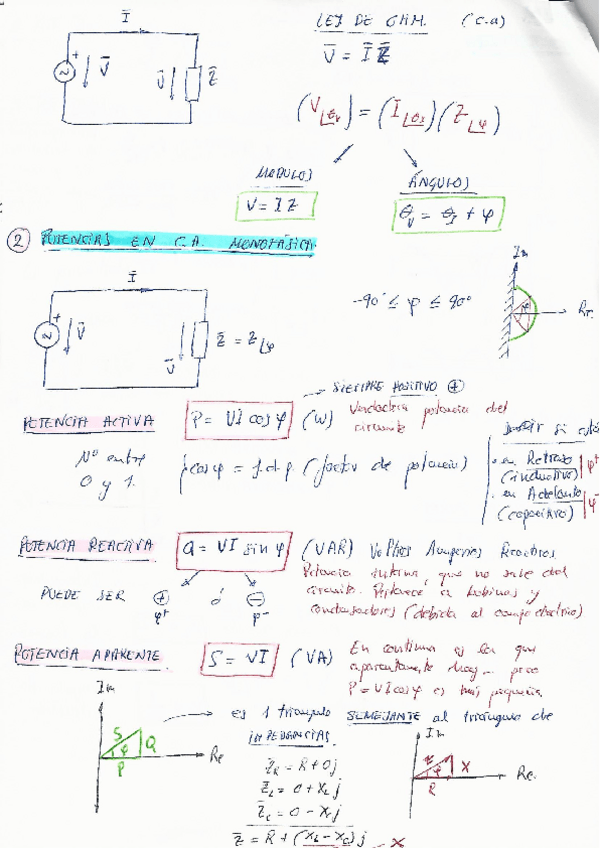 Ī
LEY DE OHM. (c.a)
V̄ = Ī Z̄
+
V̄
V̄
Z̄
(V∠θv) = (I∠θI)(Z∠φ)
MODULOS
V = I Z
ÁNGULOS
θv = θI + φ
② POTENCIAS EN C.A. MONOFÁSICA.
Ī
+
V̄
V̄
Z̄ = Z∠φ
-90° ≤ φ ≤ 90°
Im
φ
→ SIEMPRE POSITIVO ⊕
POTENCIA ACTIVA
P = VI cos φ
(W) Verdadera potencia del
circuito
Nº entre
0 y 1.
cos φ = f.d.p. (factor de potencia)
en Retraso
(inductivo)
φ+
en Adelanto
(capacitivo)
φ-
POTENCIA REACTIVA
Q = VI sin φ
(VAR) Voltios Amperios Reactivos
Potencia interna, que no sale del
circuito. Pertenece a bobinas y
condensadores (debida al campo eléctrico)
PUEDE SER ⊕ ó ⊖
φ+ φ-
POTENCIA APARENTE
S = VI
(VA)
En continua es la que
aparentemente hay... pero
P = VI cos φ es más pequeña
Im
S
φ
Q
P
Re
→ es 1 triangulo SEMEJANTE al triángulo de
IMPEDANCIAS.
Z̄R = R + 0j
Z̄L = 0 + XL j
Z̄C = 0 - XC j
Z̄ = R + (XL - XC) j
X
Im
Z
φ
X
R
Re.